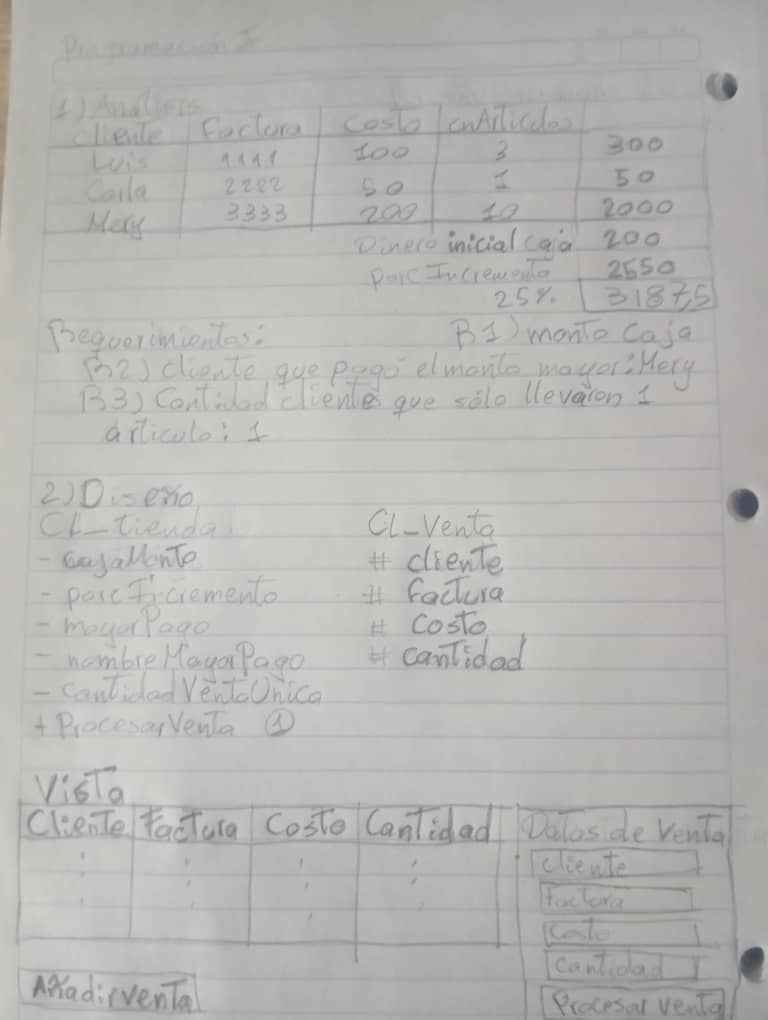 Programación I
1) Análisis
cliente Factura Costo cnArticulos
Luis 1111 100 3 300
Carla 2222 50 1 50
Mery 3333 200 10 2000
Dinero inicial caja 200
porc Incremento 2550
25% 3187,5
Requerimientos: R1) monto Caja
R2) cliente que pagó el monto mayor: Mery
R3) Cantidad clientes que sólo llevaron 1
articulo: 1
2) Diseño
CL_tienda CL_Venta
- cajaMonto # cliente
- porcIncremento # factura
- mayorPago # costo
- nombreMayorPago # cantidad
- cantidadVentaUnica
+ ProcesarVenta ①
Vista
Cliente Factura Costo Cantidad Datos de Venta
cliente
factura
costo
cantidad
Añadir venta Procesar venta